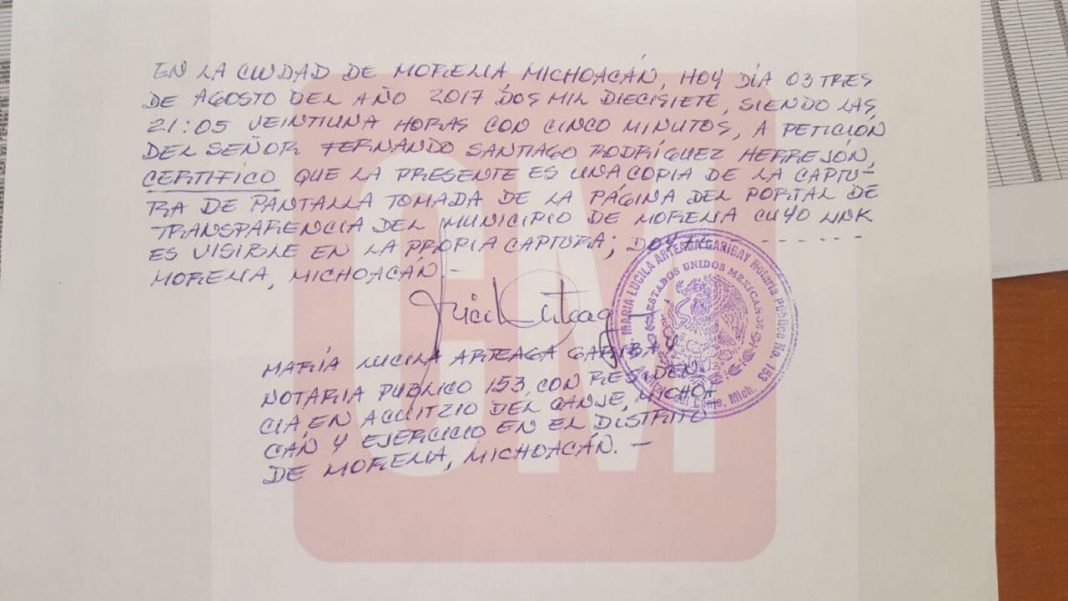 EN LA CIUDAD DE MORELIA, MICHOACÁN, HOY DÍA 03 TRES
DE AGOSTO DEL AÑO 2017 DOS MIL DIECISIETE, SIENDO LAS
21:05 VEINTIUNA HORAS CON CINCO MINUTOS, A PETICIÓN
DEL SEÑOR FERNANDO SANTIAGO RODRÍGUEZ HERREJÓN,
CERTIFICO QUE LA PRESENTE ES UNA COPIA DE LA CAPTU-
RA DE PANTALLA TOMADA DE LA PÁGINA DEL PORTAL DE
TRANSPARENCIA DEL MUNICIPIO DE MORELIA CUYO LINK
ES VISIBLE EN LA PROPIA CAPTURA; DOY FE.- - - - - - -
MORELIA, MICHOACÁN.-
MARÍA LUCILA ARTEAGA GARIBAY
NOTARIA PUBLICO 153, CON RESIDEN
CIA EN ACUITZIO DEL CANJE, MICHOA
CÁN Y EJERCICIO EN EL DISTRITO
DE MORELIA, MICHOACÁN.-
MARIA LUCILA ARTEAGA GARIBAY Notaria Publica No. 153
ESTADOS UNIDOS MEXICANOS
del Canje, Mich.
CM